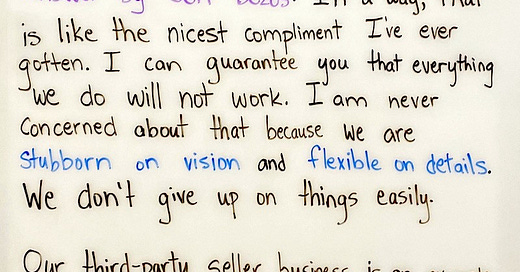 Answer by Jeff Bezos: In a way, that
is like the nicest compliment I've ever
gotten. I can guarantee you that everything
we do will not work. I am never
Concerned about that because we are
Stubborn on vision and flexible on details.
We don't give up on things easily.
Our third-party seller business is an